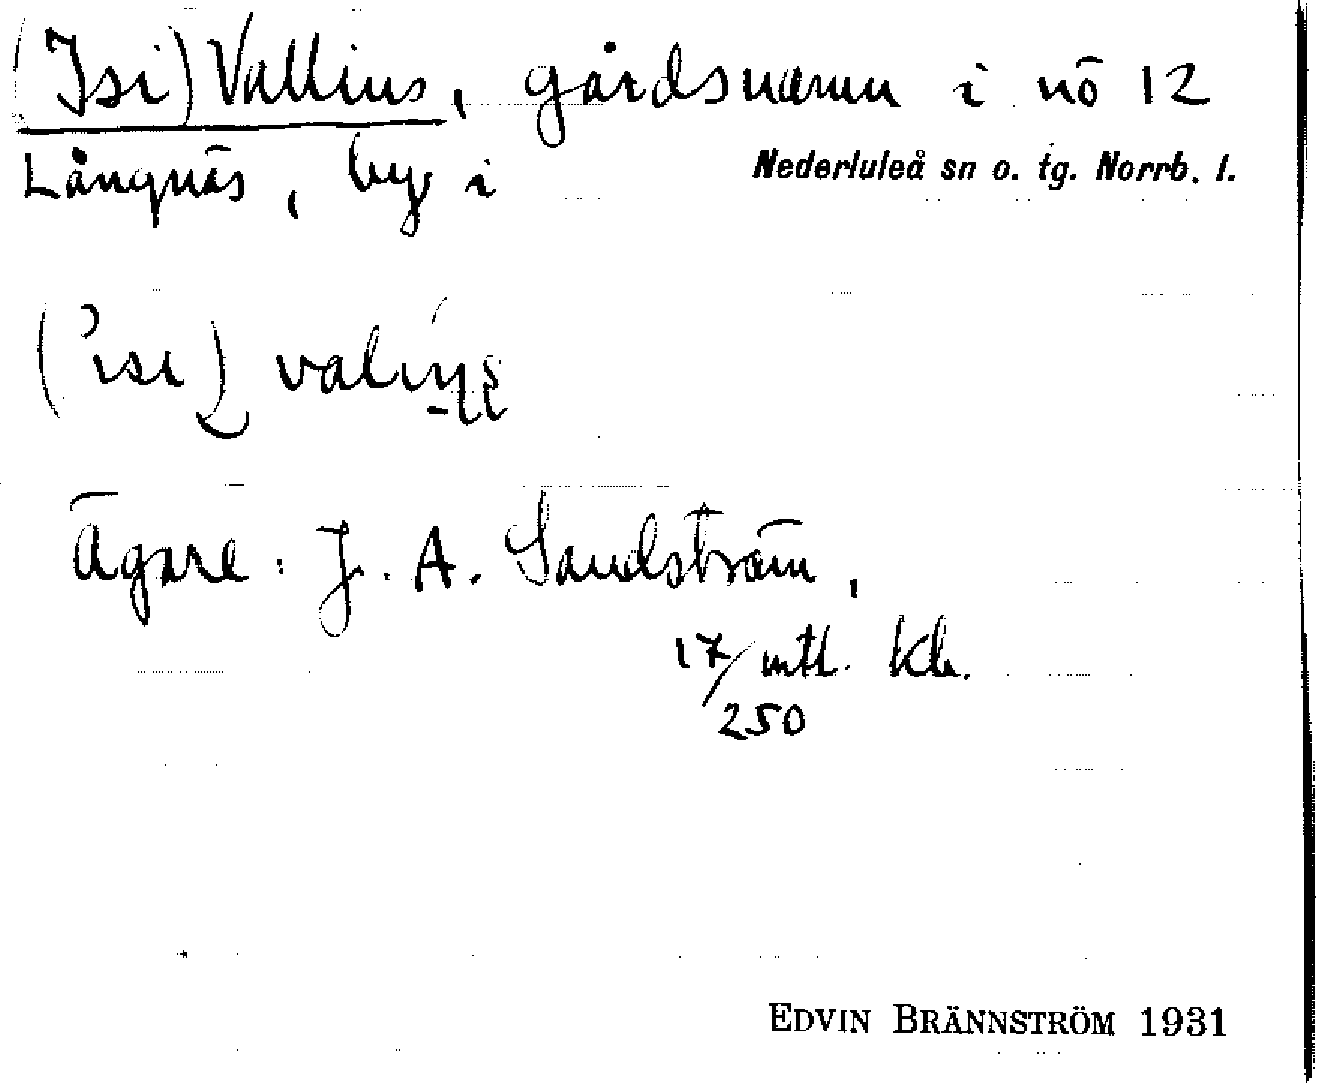 (Isi) Vallius, gårdsnamn i nō 12
Långnäs, by i Nederluleå sn o. tg. Norrb. l.
Ägare: J. A. Sandström,
17/250 mtl. Kr.
EDVIN BRÄNNSTRÖM 1931